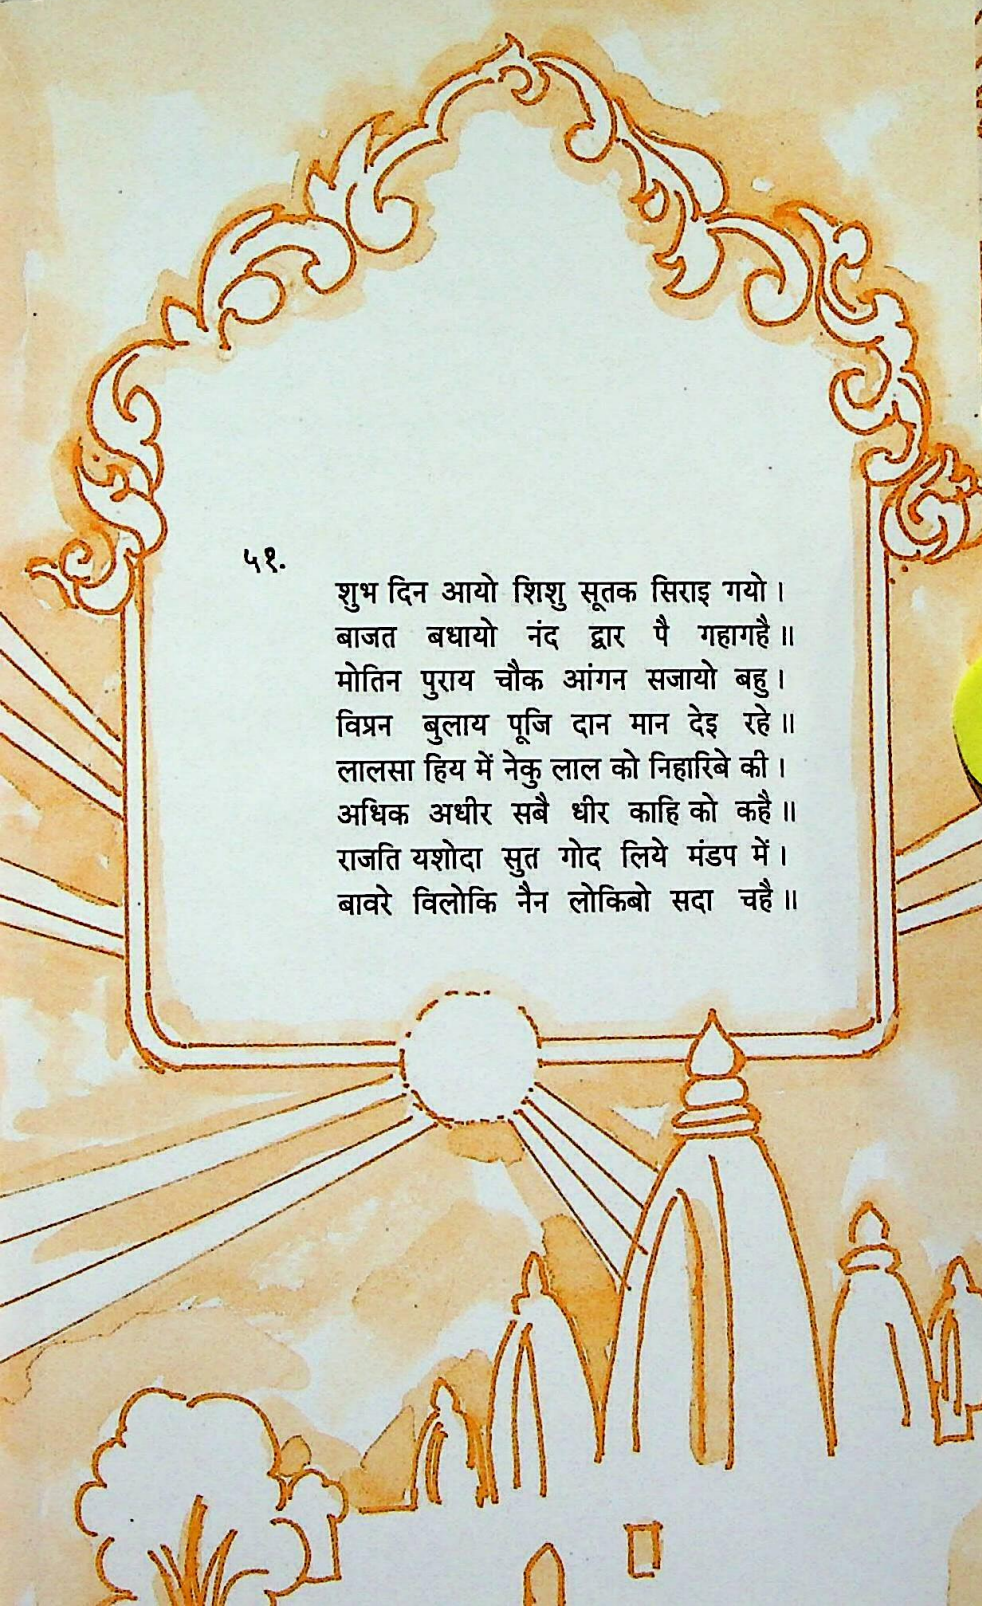 ५१.
शुभ दिन आयो शिशु सूतक सिराइ गयो ।
बाजत बधायो नंद द्वार पै गहागहै ॥
मोतिन पुराय चौक आंगन सजायो बहु ।
विप्रन बुलाय पूजि दान मान देइ रहे ॥
लालसा हिय में नेकु लाल को निहारिबे की ।
अधिक अधीर सबै धीर काहि को कहै ॥
राजति यशोदा सुत गोद लिये मंडप में ।
बावरे विलोकि नैन लोकिबो सदा चहै ॥